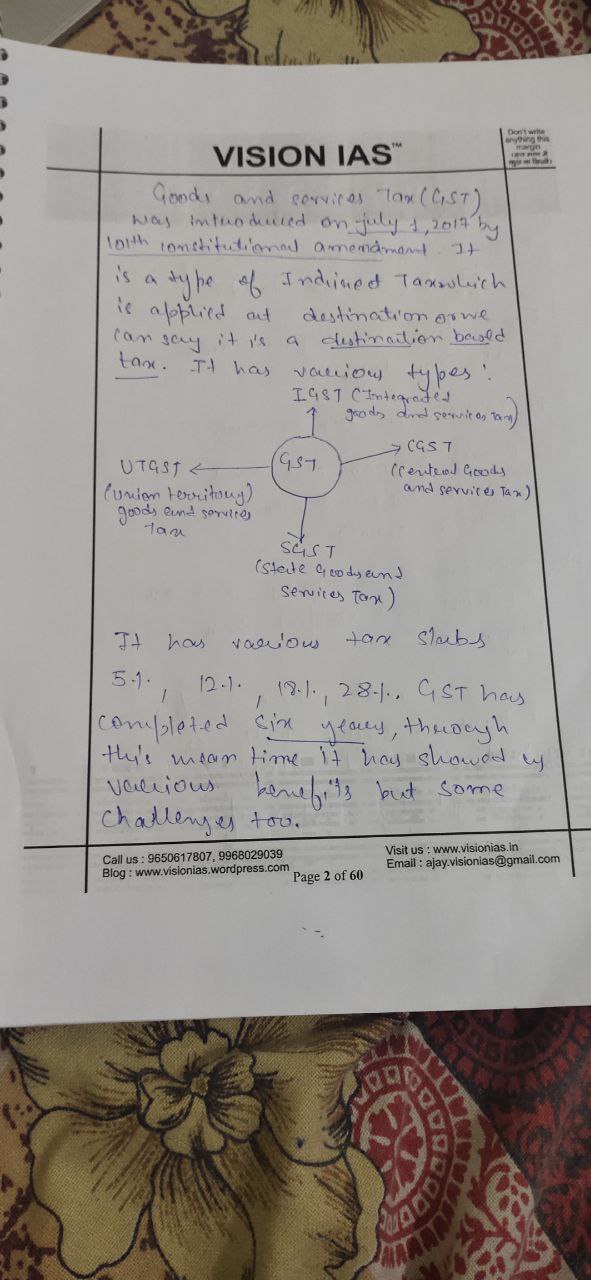 Don't write
anything this
margin
VISION IAS™
Goods and services Tax (GST)
was introduced on july 1, 2017 by
101th constitutional amendment. It
is a type of Indirect Tax which
is applied at destination or we
can say it is a destination based
tax. It has various types:
IGST (Integrated
goods and services Tax)
GST
CGST
(Central Goods
and service Tax)
UTGST
(union territory)
goods and services
Tax
SGST
(State Goods and
Services Tax)
It has various tax slabs
5%, 12%, 18%, 28%. GST has
completed six years, through
this mean time it has showed us
various benefits but some
challenges too.
Call us : 9650617807, 9968029039
Blog : www.visionias.wordpress.com
Page 2 of 60
Visit us : www.visionias.in
Email : ajay.visionias@gmail.com